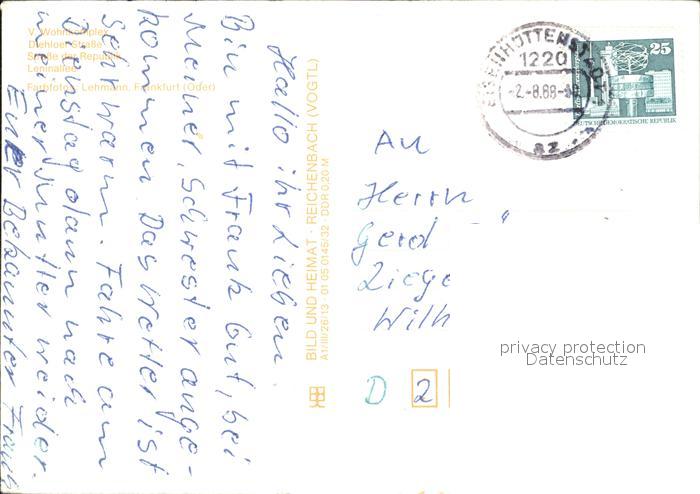 V. Wohnkomplex
Diehloer Straße
Straße der Republik
Leninallee
Farbfotos: Lehmann, Frankfurt (Oder)
Hallo ihr Lieben.
Bin mit Frank Gut, bei
Meiner, Schwester ange-
kommen. Das Wetter ist
sehr warm. Fahre am
Dienstag dann nach
meiner Mutter weider.
Euer Bekannter Frank
BILD UND HEIMAT · REICHENBACH (VOGTL)
A1/III/26/13 · 01 05 0146/32 · DDR 0,20 M
EISENHÜTTENSTADT
1220
-2.-8.88-
az
25
DEUTSCHE DEMOKRATISCHE REPUBLIK
An
Herrn
Gerd
Ziege
Wilh
D 2
privacy protection
Datenschutz